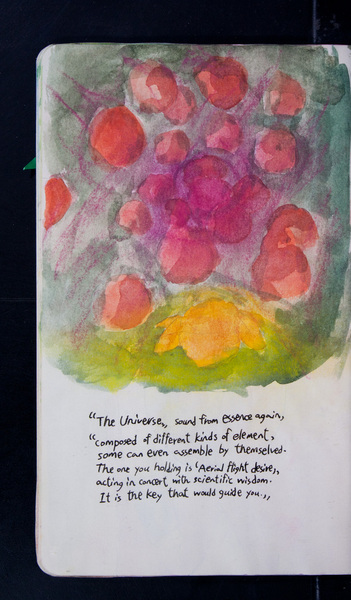 “The Universe,, sound from essence again,
“composed of different kinds of element,
some can even assemble by themselves.
The one you holding is ‘Aerial flight desire,,
acting in concert with scientific wisdom.
It is the key that would guide you.,,